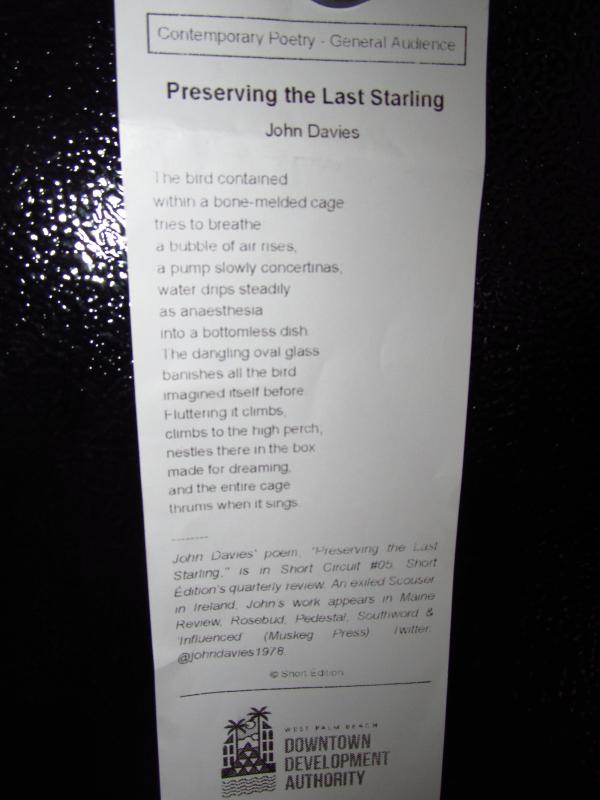 Contemporary Poetry - General Audience
Preserving the Last Starling
John Davies
The bird contained
within a bone-melded cage
tries to breathe
a bubble of air rises,
a pump slowly concertinas;
water drips steadily
as anaesthesia
into a bottomless dish.
The dangling oval glass
banishes all the bird
imagined itself before.
Fluttering it climbs,
climbs to the high perch,
nestles there in the box
made for dreaming,
and the entire cage
thrums when it sings.
--------
John Davies' poem, "Preserving the Last
Starling," is in Short Circuit #05, Short
Édition's quarterly review. An exiled Scouser
in Ireland, John's work appears in Maine
Review, Rosebud, Pedestal, Southword &
'Influenced' (Muskeg Press) Twitter:
@johndavies1978.
© Short Édition
WEST PALM BEACH
DOWNTOWN
DEVELOPMENT
AUTHORITY